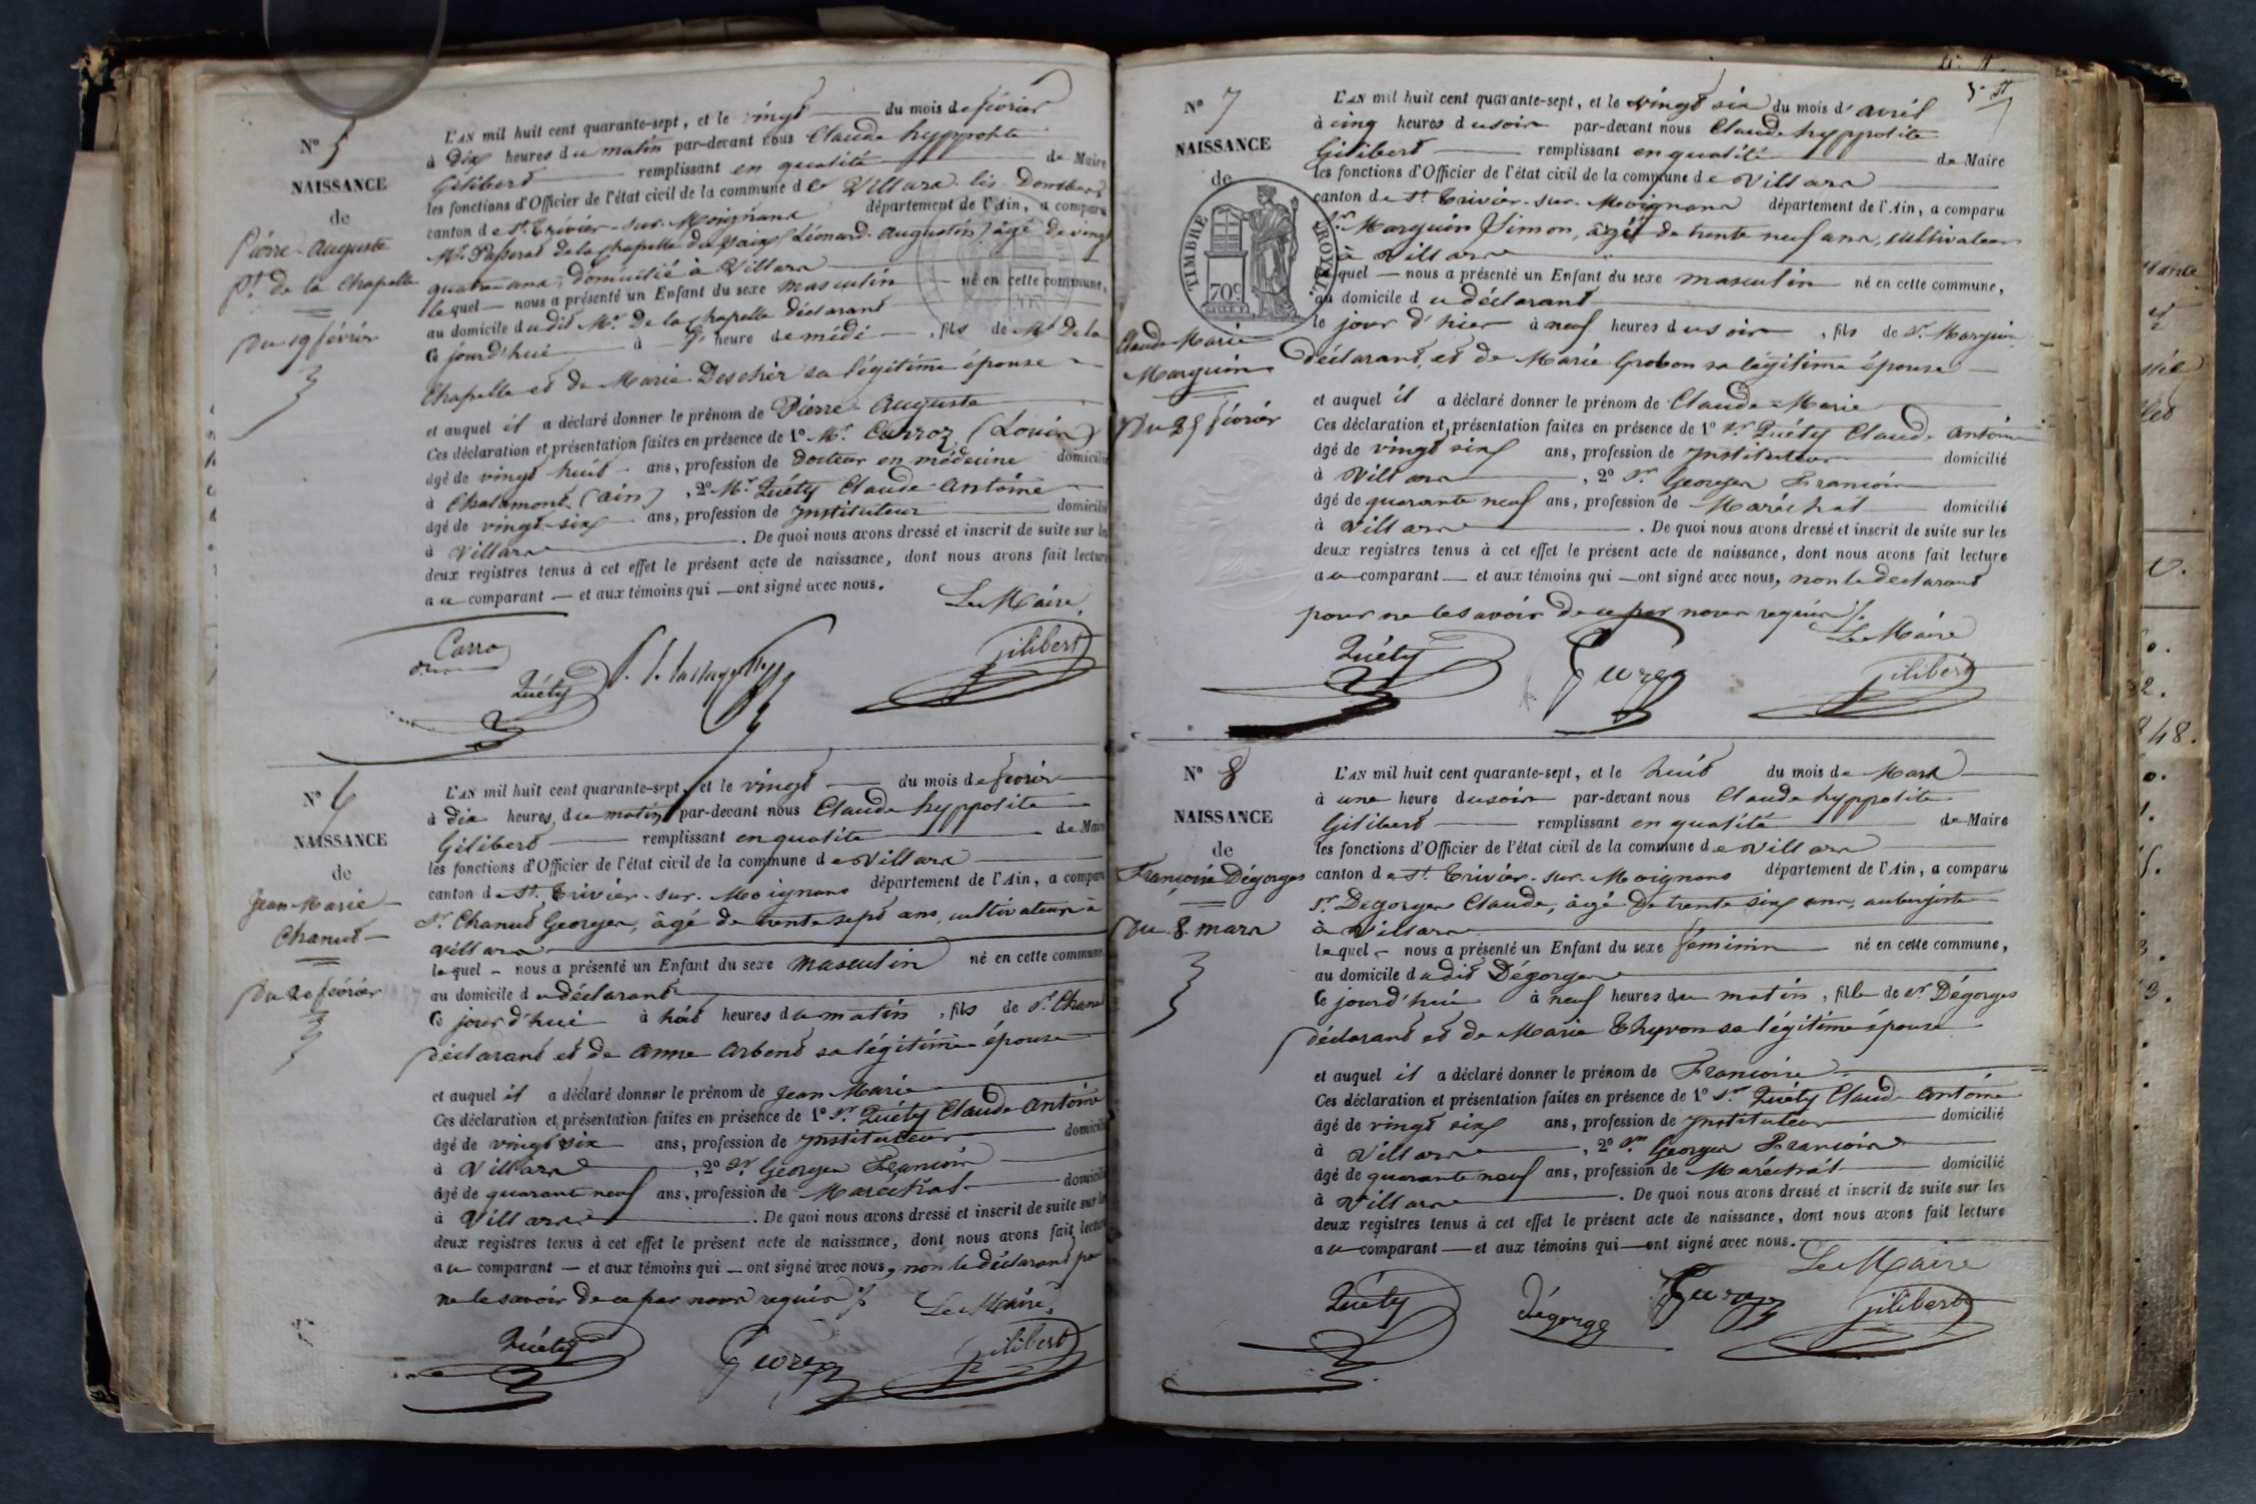 N° 5
NAISSANCE
de
Pierre-Auguste
Pt. de la Chapelle
Du 19 février
L'AN mil huit cent quarante-sept, et le vingt du mois de février
à Dix heures du matin par-devant nous Claude hyppolite
Gilibert remplissant en qualité de Maire
les fonctions d'Officier de l'état civil de la commune de Villars les Dombes
canton de St. Trivier-sur-Moignans département de l'Ain, a comparu
Mr. Passerat de la chapelle (Léonard-Augustin) âgé de vingt
quatre ans, domicilié à Villars
lequel nous a présenté un Enfant du sexe masculin né en cette commune,
au domicile dudit Mr. De la chapelle déclarant
Ce jourd'hui à heure de midi, fils de Mr De la
Chapelle et de Marie Descher sa légitime épouse
et auquel il a déclaré donner le prénom de Pierre-Auguste
Ces déclaration et présentation faites en présence de 1° Mr. Carroz (Louis)
âgé de vingt huit ans, profession de docteur en médecine domicilié
à Chalamont (ain), 2° Mr. Quéty Claude-Antoine
âgé de vingt-six ans, profession de Instituteur domicilié
à Villars. De quoi nous avons dressé et inscrit de suite sur les
deux registres tenus à cet effet le présent acte de naissance, dont nous avons fait lecture
au comparant et aux témoins qui ont signé avec nous.
Le Maire,
Carroz
Quéty
Gilibert
N° 6
NAISSANCE
de
Jean-Marie
Chanut
Du 20 février
L'AN mil huit cent quarante-sept, et le vingt du mois de février
à dix heures du matin par-devant nous Claude hyppolite
Gilibert remplissant en qualité de Maire
les fonctions d'Officier de l'état civil de la commune de Villars
canton de St. Trivier-sur-Moignans département de l'Ain, a comparu
Sr. Chanut Georges, âgé de trente sept ans, cultivateur à
Villars
lequel nous a présenté un Enfant du sexe masculin né en cette commune,
au domicile du déclarant
Ce jourd'hui à huit heures du matin, fils de Sr. Chanut
déclarant et de Anne Arbent sa légitime épouse
et auquel il a déclaré donner le prénom de Jean Marie
Ces déclaration et présentation faites en présence de 1° Sr. Quéty Claude Antoine
âgé de vingt six ans, profession de Instituteur domicilié
à Villars, 2° Sr. Georges François
âgé de quarante neuf ans, profession de Maréchal domicilié
à Villars. De quoi nous avons dressé et inscrit de suite sur les
deux registres tenus à cet effet le présent acte de naissance, dont nous avons fait lecture
au comparant et aux témoins qui ont signé avec nous, non le déclarant pour
ne le savoir de ce par nous requis ./.
Le Maire,
Quéty
Georges
Gilibert
N° 7
NAISSANCE
de
TIMBRE ROYAL.
70c
Claude-Marie
Marguin
Du 25 février
L'AN mil huit cent quarante-sept, et le vingt six du mois d'avril
à cinq heures du soir par-devant nous Claude hyppolite
Gilibert remplissant en qualité de Maire
les fonctions d'Officier de l'état civil de la commune de Villars
canton de St. Trivier-sur-Moignans département de l'Ain, a comparu
Sr. Marguin Simon, âgé de trente neuf ans, cultivateur
à Villars
lequel nous a présenté un Enfant du sexe masculin né en cette commune,
au domicile du déclarant
le jour d'hier à neuf heures du soir, fils de Sr. Marguin
déclarant, et de Marie Grobon sa légitime épouse
et auquel il a déclaré donner le prénom de Claude-Marie
Ces déclaration et présentation faites en présence de 1° Sr. Quéty Claude Antoine
âgé de vingt six ans, profession de Instituteur domicilié
à Villars, 2° Sr. Georges François
âgé de quarante neuf ans, profession de Maréchal domicilié
à Villars. De quoi nous avons dressé et inscrit de suite sur les
deux registres tenus à cet effet le présent acte de naissance, dont nous avons fait lecture
au comparant et aux témoins qui ont signé avec nous, non le déclarant
pour ne le savoir de ce par nous requis ./.
Le Maire
Quéty
Georges
Gilibert
N° 8
NAISSANCE
de
Françoise Dégorges
Du 8 mars
L'AN mil huit cent quarante-sept, et le huit du mois de Mars
à une heure du soir par-devant nous Claude hyppolite
Gilibert remplissant en qualité de Maire
les fonctions d'Officier de l'état civil de la commune de Villars
canton de St. Trivier-sur-Moignans département de l'Ain, a comparu
Sr. Degorges Claude, âgé de trente six ans, aubergiste
à Villars
lequel nous a présenté un Enfant du sexe féminin né en cette commune,
au domicile dudit Dégorges
Ce jourd'hui à neuf heures du matin, fille de Sr. Dégorges
déclarant et de Marie Thyvon sa légitime épouse
et auquel il a déclaré donner le prénom de Françoise
Ces déclaration et présentation faites en présence de 1° Sr. Quéty Claude Antoine
âgé de vingt six ans, profession de Instituteur domicilié
à Villars, 2° Sr. Georges François
âgé de quarante neuf ans, profession de Maréchal domicilié
à Villars. De quoi nous avons dressé et inscrit de suite sur les
deux registres tenus à cet effet le présent acte de naissance, dont nous avons fait lecture
au comparant et aux témoins qui ont signé avec nous.
Le Maire
Quéty
Dégorge
Georges
Gilibert